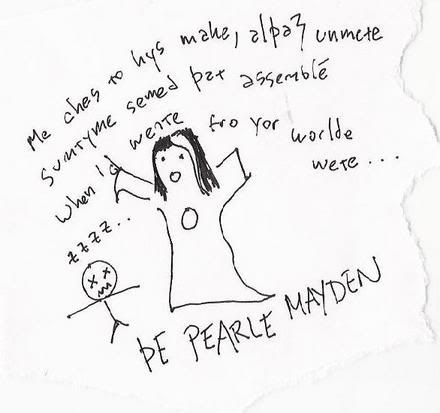 Me ches to hys make, alþaȝ unmete
Sumtyme semed þat assemblé
When I wente fro yor worlde
wete ...
zzzz..
ÞE PEARLE MAYDEN